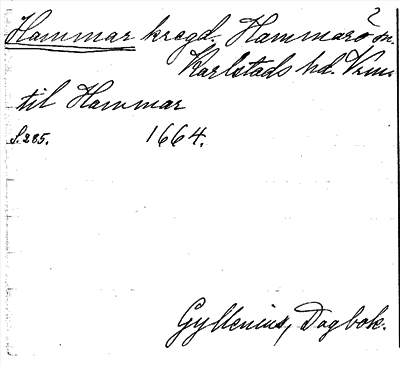 ?
Hammar krgd. Hammarö sn.
Karlstads hd. Vrml.
til Hammar
S. 285. 1664.
Gyllenius, Dagbok.